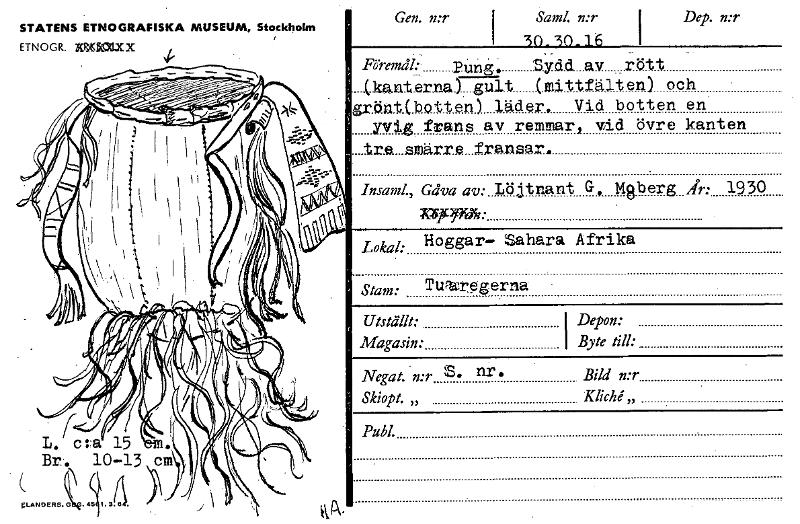 STATENS ETNOGRAFISKA MUSEUM, Stockholm
ETNOGR.
L. c:a 15 cm.
Br. 10-13 cm.
HA.
Gen. n:r Saml. n:r Dep. n:r
30.30.16
Föremål: Pung. Sydd av rött
(kanterna) gult (mittfälten) och
grönt(botten) läder. Vid botten en
yvig frans av remmar, vid övre kanten
tre smärre fransar.
Insaml., Gåva av: Löjtnant G. Moberg År: 1930
Lokal: Hoggar- Sahara Afrika
Stam: Tuaregerna
Utställt: Depon:
Magasin: Byte till:
Negat. n:r S. nr. Bild n:r
Skiopt. „ Kliché „
Publ.